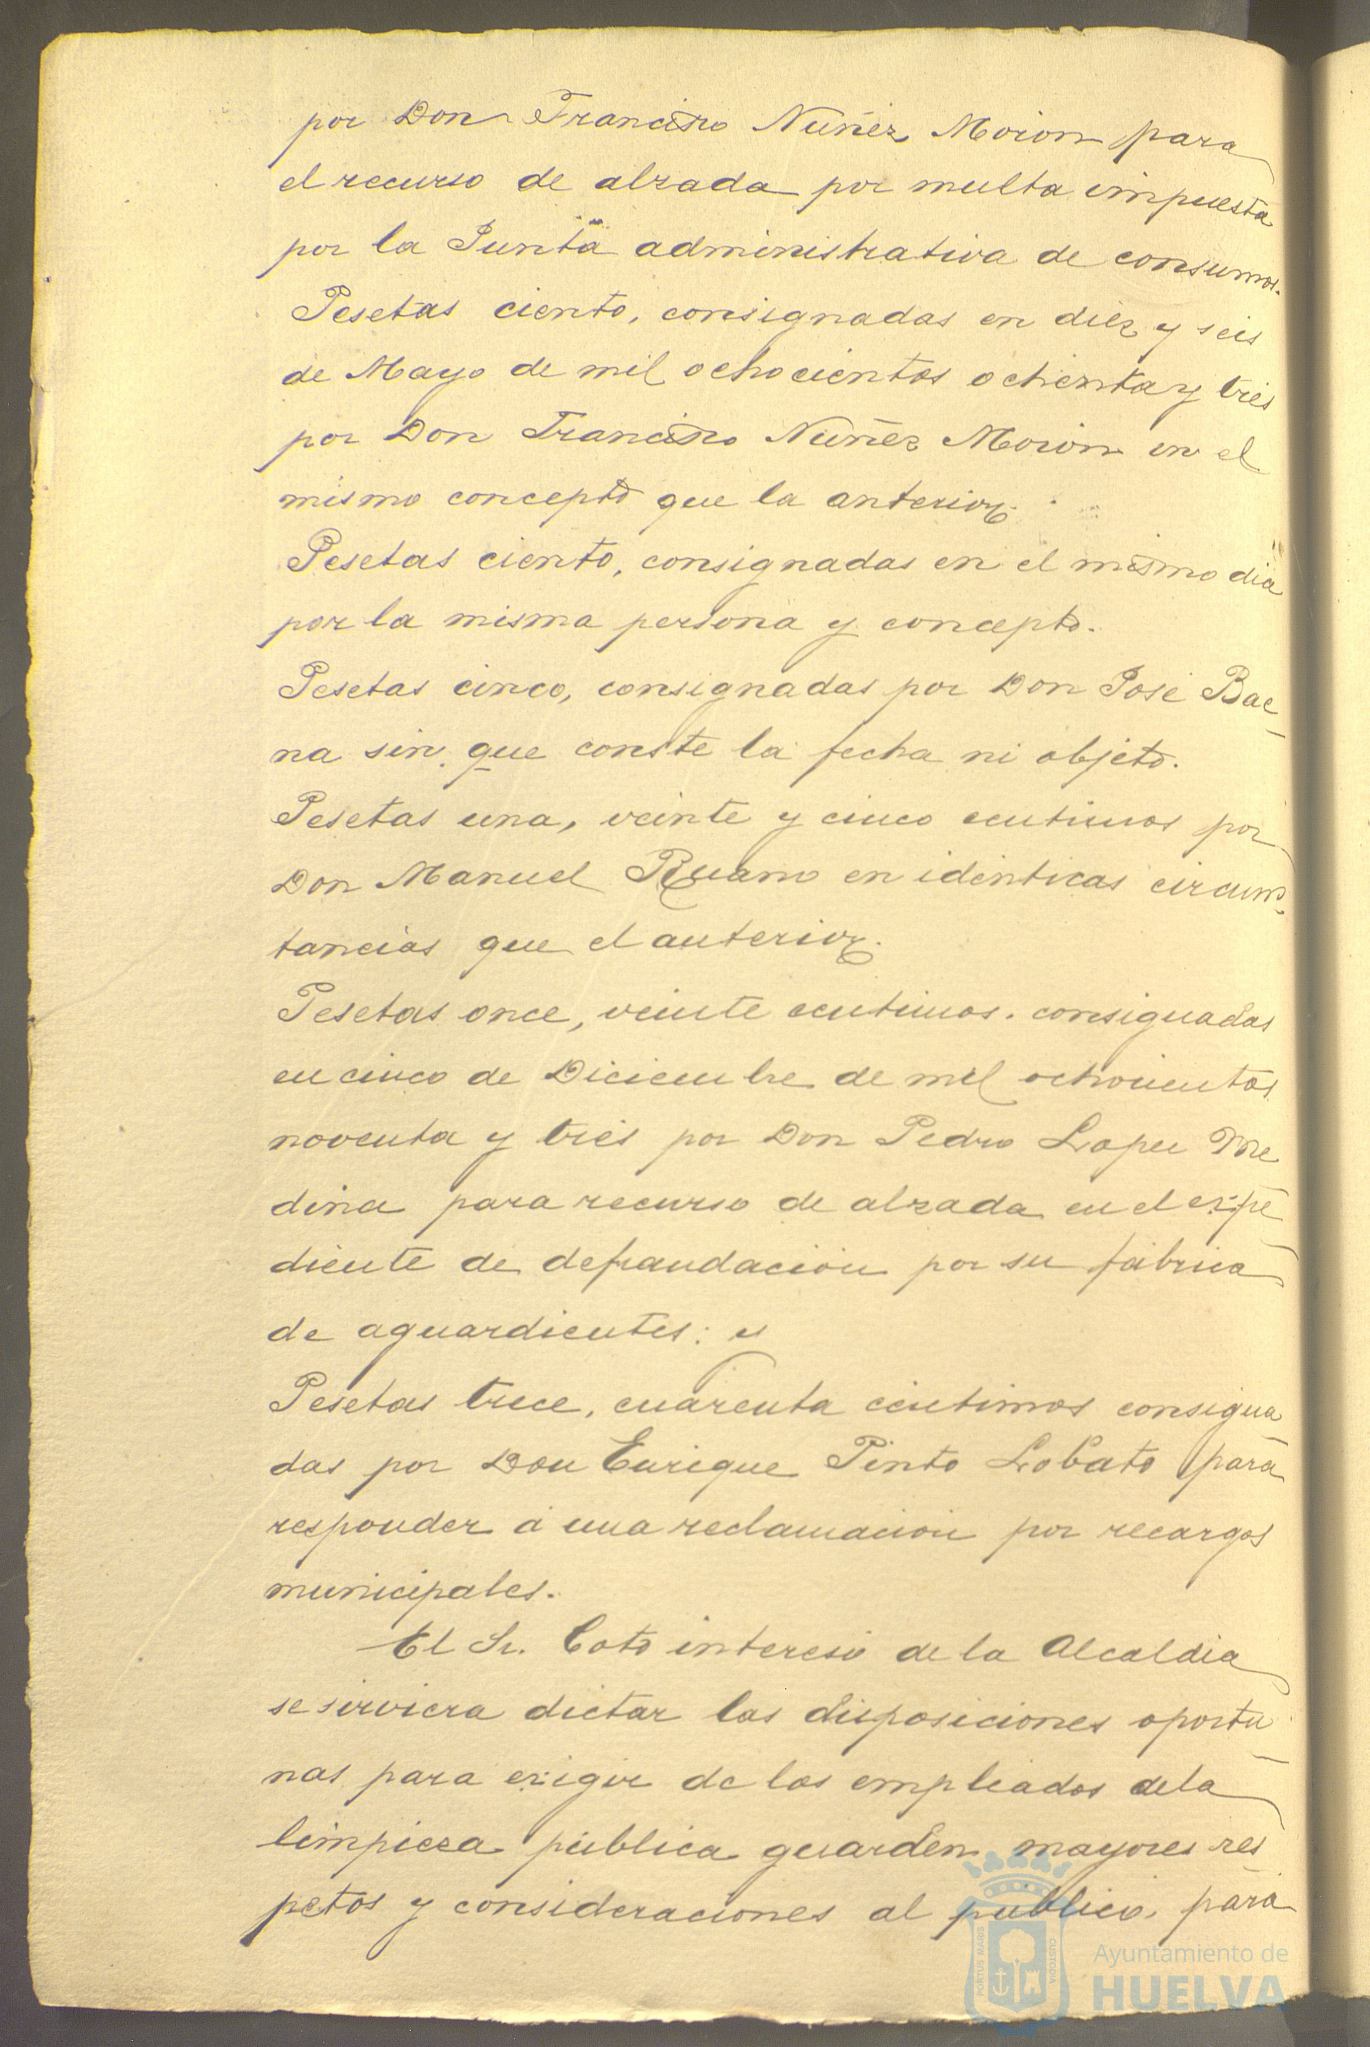 por Don Francisco Nuñez Moron para
el recurso de alzada por multa impuesta
por la Junta administrativa de consumos.
Pesetas ciento, consignadas en diez y seis
de Mayo de mil ochocientos ochenta y tres
por Don Francisco Nuñez Moron en el
mismo concepto que la anterior.
Pesetas ciento, consignadas en el mismo dia
por la misma persona y concepto.
Pesetas cinco, consignadas por Don José Bae
na sin que conste la fecha ni objeto.
Pesetas una, veinte y cinco centimos por
Don Manuel Ruano en identicas circuns-
tancias que el anterior.
Pesetas once, veinte centimos. consignadas
en cinco de Diciembre de mil ochocientos
noventa y tres por Don Pedro Lopez Me
dina para recurso de alzada en el expe
diente de defraudación por su fábrica
de aguardientes: y
Pesetas trece, cuarenta centimos consigna
das por Don Enrique Pinto Lobato para
responder á una reclamación por recargos
municipales.
El Sr. Coto interesó de la Alcaldia
se sirviera dictar las disposiciones oportu
nas para exigir de los empleados dela
limpieza pública guarden mayores res
petos y consideraciones al público, para
PORTUS MARIS
CUSTODIA
Ayuntamiento de
HUELVA